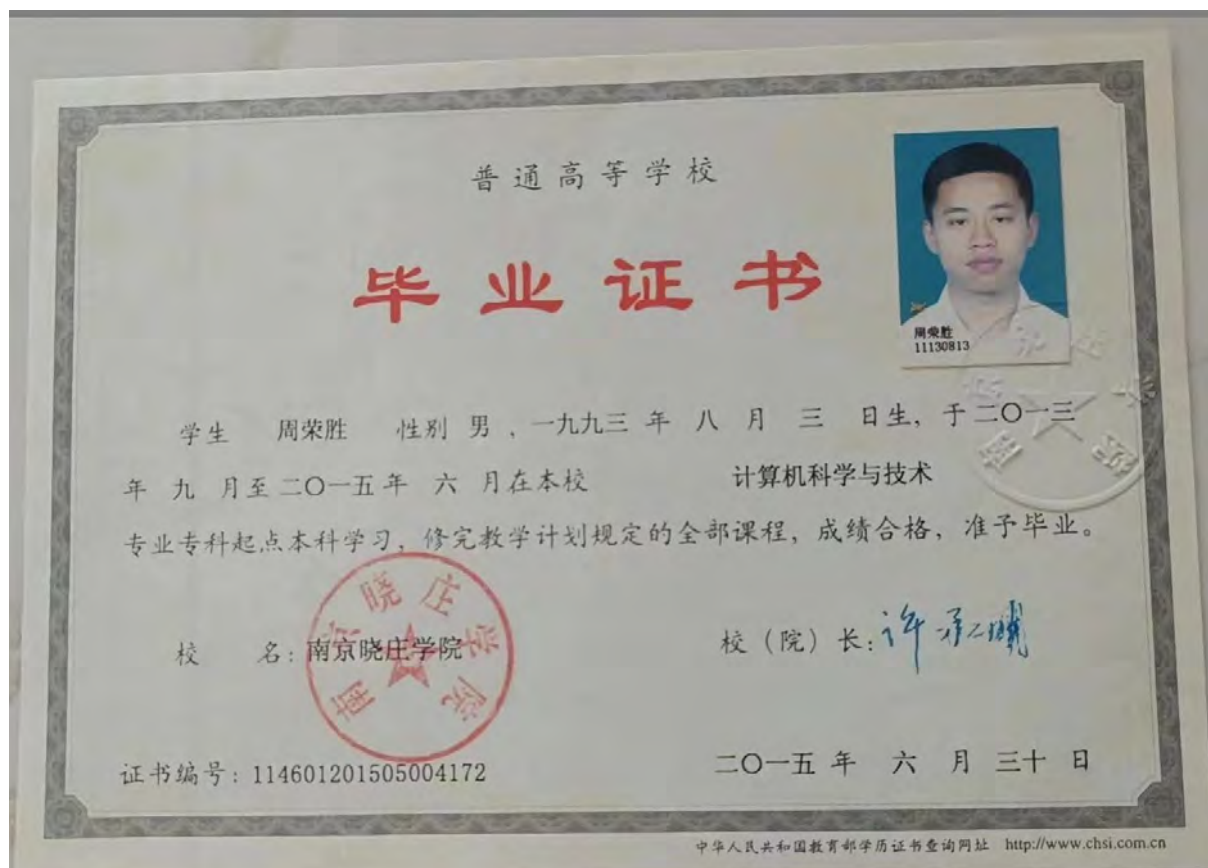 普通高等学校
毕业证书
周荣胜
11130813
学生 周荣胜 性别 男，一九九三 年 八 月 三 日生，于二〇一三
年 九 月至二〇一五年 六 月在本校 计算机科学与技术
专业专科起点本科学习，修完教学计划规定的全部课程，成绩合格，准予毕业。
南京晓庄学院
校 名：南京晓庄学院
校（院）长：
证书编号：114601201505004172
二〇一五 年 六 月 三十 日
中华人民共和国教育部学历证书查询网址 http://www.chsi.com.cn